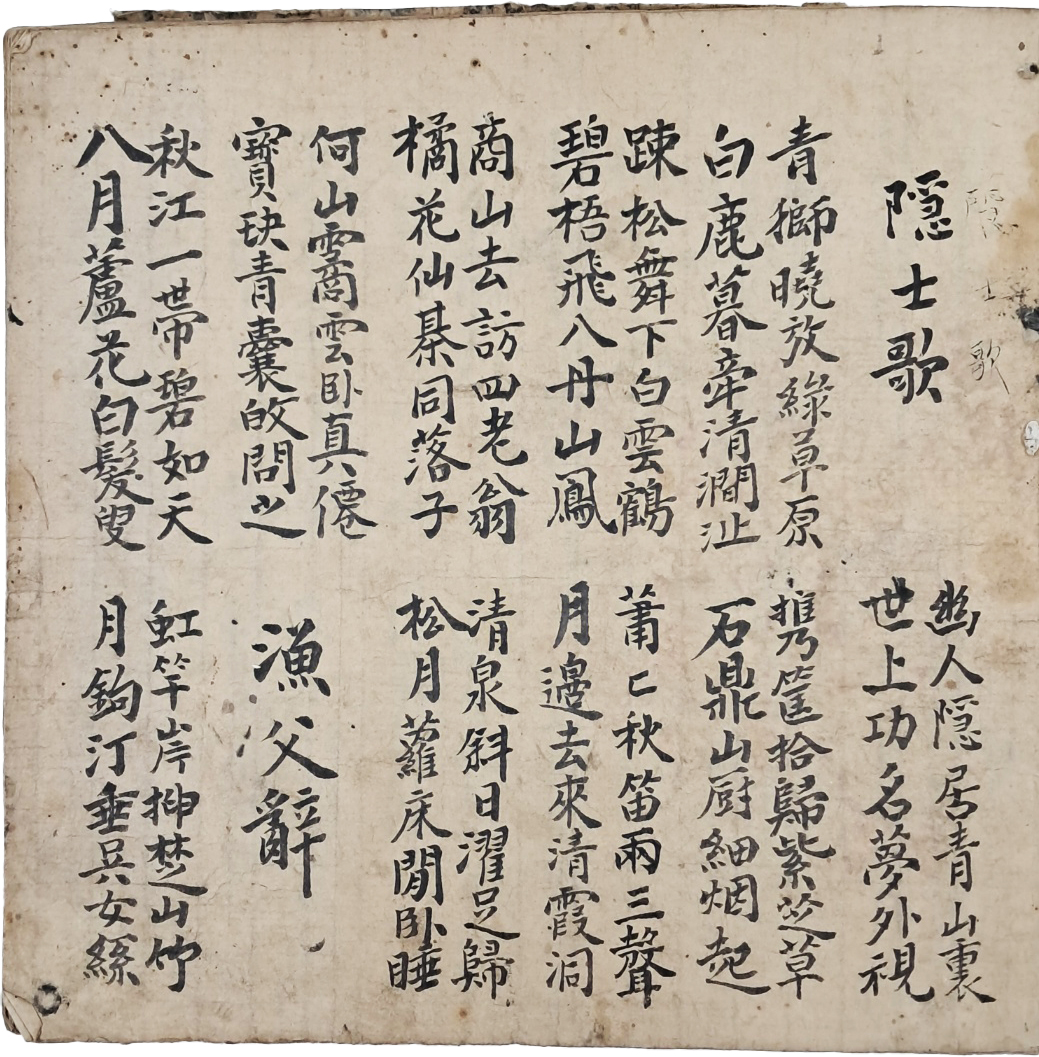 隱士歌
隠士歌
幽人隠居青山裏
世上功名夢外視
青獅曉放綠草原
白鹿暮牽清澗沚
携筐拾歸紫芝草
石鼎山厨細烟起
踈松舞下白雲鶴
碧梧飛八丹山鳳
蕭〻秋笛兩三聲
月邊去來清霞洞
商山去訪四老翁
橘花仙碁同落子
清泉斜日濯足歸
松月蘿床閒卧睡
何山霱雲卧真僊
寶玦青囊問之
漁父辭
秋江一帶碧如天
八月蘆花白髮叟
虹竿岸楚山竹
月鈎汀垂吳女絲